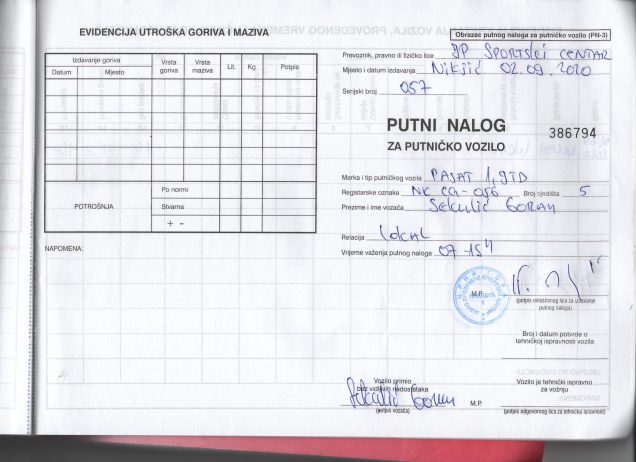 EVIDENCIJA UTROŠKA GORIVA I MAZIVA
Izdavanje goriva
Datum Mjesto
Vrsta goriva
Vrsta maziva
Lit.
Kg
Potpis
POTROŠNJA
Po normi
Stvarna
+ -
NAPOMENA:
Obrazac putnog naloga za putničko vozilo (PN-3)
Prevoznik, pravno ili fizičko lice JP SPORTSKI CENTAR
Mjesto i datum izdavanja Nikšić 02.09.2020
Serijski broj 057
PUTNI NALOG 386794
ZA PUTNIČKO VOZILO
Marka i tip putničkog vozila PASAT 1,9TD
Registarske oznake NK CG-056 Broj sjedišta 5
Prezime i ime vozača Sekulić GORAN
Relacija LOCAL
Vrijeme važenja putnog naloga 07-15 h
M.P.
(potpis ovlašćenog lica za izdavanje putnog naloga)
Broj i datum potvrde o tehničkoj ispravnosti vozila
Vozilo primio
bez vidljivih nedostataka
Sekulić Goran
(potpis vozača)
M.P.
Vozilo je tehnički ispravno za vožnju
(potpis odgovornog lica za tehničku ispravnost)